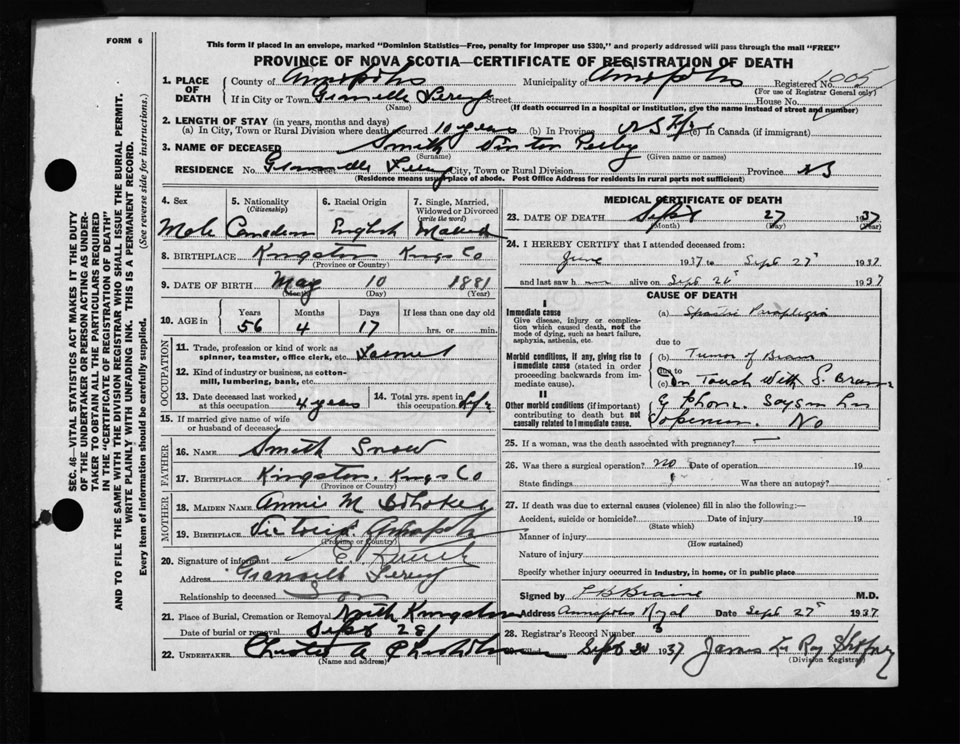 FORM 6
This form if placed in an envelope, marked "Dominion Statistics—Free, penalty for improper use $300," and properly addressed will pass through the mail "FREE"
PROVINCE OF NOVA SCOTIA—CERTIFICATE OF REGISTRATION OF DEATH
SEC. 46—VITAL STATISTICS ACT MAKES IT THE DUTY
OF THE UNDERTAKER OR PERSON ACTING AS UNDER-
TAKER TO OBTAIN ALL THE PARTICULARS REQUIRED
IN THE "CERTIFICATE OF REGISTRATION OF DEATH"
AND TO FILE THE SAME WITH THE DIVISION REGISTRAR WHO SHALL ISSUE THE BURIAL PERMIT.
WRITE PLAINLY WITH UNFADING INK. THIS IS A PERMANENT RECORD.
Every item of information should be carefully supplied. (See reverse side for instructions.)
1. PLACE OF DEATH County of Annapolis Municipality of Annapolis Registered No. 1005
(For use of Registrar General only)
If in City or Town Granville Ferry Street House No.
(Name) (If death occurred in a hospital or institution, give the name instead of street and number)
2. LENGTH OF STAY (in years, months and days)
(a) In City, Town or Rural Division where death occurred 10 years (b) In Province NS Life (c) In Canada (if immigrant)
3. NAME OF DECEASED Smith
(Surname) (Given name or names)
RESIDENCE No. Granville Ferry City, Town or Rural Division Province NS
(Residence means usual place of abode. Post Office Address for residents in rural parts not sufficient)
4. Sex 5. Nationality (Citizenship) 6. Racial Origin 7. Single, Married, Widowed or Divorced (write the word)
Male Canadian English Married
8. BIRTHPLACE Kingston Kings Co
(Province or Country)
9. DATE OF BIRTH May 10 1881
(Month) (Day) (Year)
10. AGE in Years Months Days If less than one day old
56 4 17 hrs. or min.
OCCUPATION
11. Trade, profession or kind of work as spinner, teamster, office clerk, etc. Farmer
12. Kind of industry or business, as cotton-mill, lumbering, bank, etc.
13. Date deceased last worked at this occupation 4 years 14. Total yrs. spent in this occupation Life
15. If married give name of wife or husband of deceased
FATHER
16. NAME Smith Snow
17. BIRTHPLACE Kingston. Kings Co
(Province or Country)
MOTHER
18. MAIDEN NAME Annie M
19. BIRTHPLACE Victoria. Annapolis
(Province or Country)
20. Signature of informant E
Address Granville Ferry
Relationship to deceased Son
21. Place of Burial, Cremation or Removal North Kingston
Date of burial or removal Sept 28
22. UNDERTAKER Charles A Chisholm
(Name and address)
MEDICAL CERTIFICATE OF DEATH
23. DATE OF DEATH Sept 27 1937
(Month) (Day) (Year)
24. I HEREBY CERTIFY that I attended deceased from:
June 1937 to Sept 27 1937
and last saw h alive on Sept 1937
CAUSE OF DEATH
I
Immediate cause
Give disease, injury or complication which caused death, not the mode of dying, such as heart failure, asphyxia, asthenia, etc.
(a) Spastic Paraplegia
due to
Morbid conditions, if any, giving rise to immediate cause (stated in order proceeding backwards from immediate cause).
(b) Tumor of Brain
due to
(c) In Touch With
II
Other morbid conditions (if important) contributing to death but not causally related to immediate cause.
phone. No
25. If a woman, was the death associated with pregnancy? —
26. Was there a surgical operation? no Date of operation 19
State findings Was there an autopsy?
27. If death was due to external causes (violence) fill in also the following:—
Accident, suicide or homicide? Date of injury 19
(State which)
Manner of injury
(How sustained)
Nature of injury
Specify whether injury occurred in industry, in home, or in public place
Signed by L B Braine M.D.
Address Annapolis Royal Date Sept 27 1937
28. Registrar's Record Number 3
Filed Sept 1937 James Le Roy
(Division Registrar)